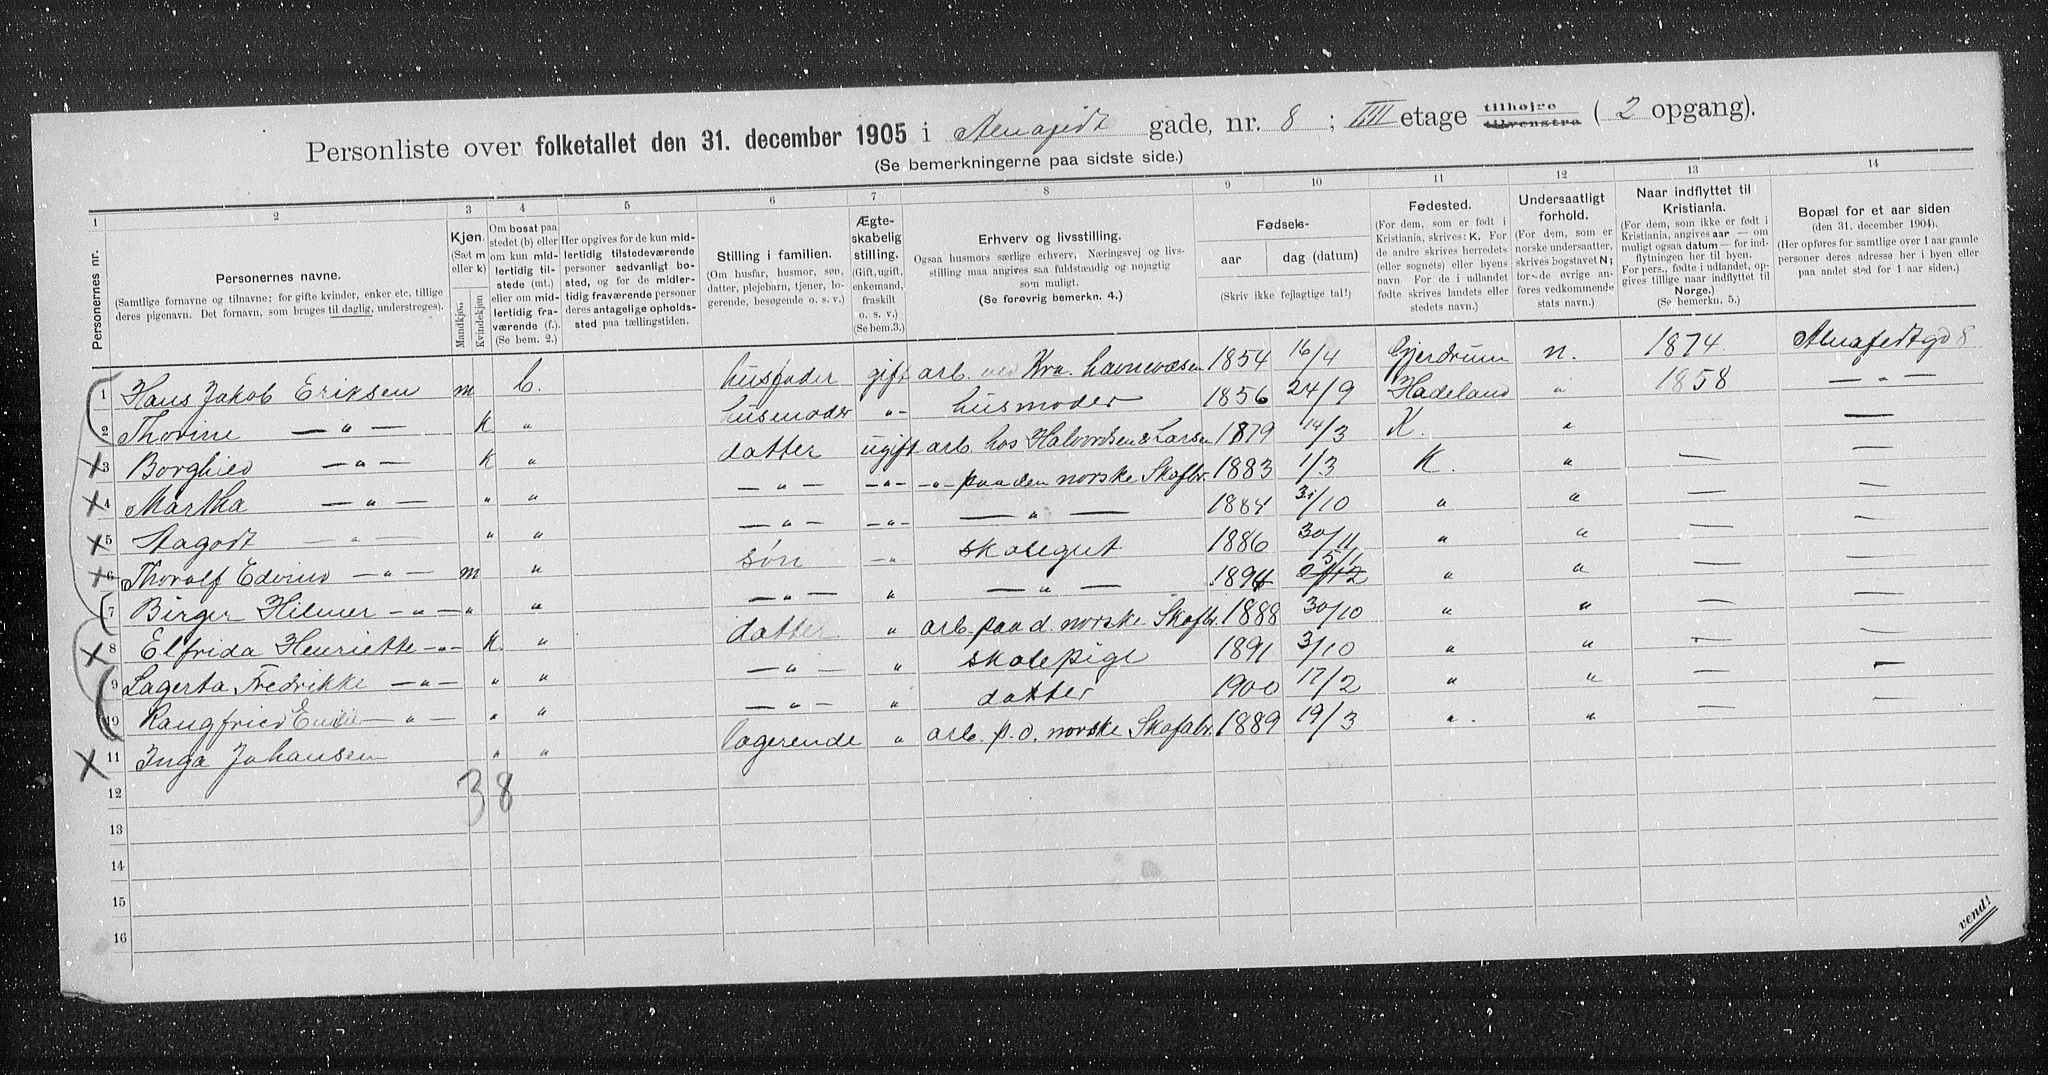 Personliste over folketallet den 31. december 1905 i Almafeldt gade, nr. 8 ; III etage tilhøjre tilvenstre ( 2 opgang).
(Se bemerkningerne paa sidste side.)
1 2 3 4 5 6 7 8 9 10 11 12 13 14
Personernes nr.
Personernes navne.
(Samtlige fornavne og tilnavne; for gifte kvinder, enker etc. tillige deres pigenavn. Det fornavn, som bruges til daglig, understreges).
Kjøn.
(Sæt m eller k)
Mandkjøn
Kvindekjøn
Om bosat paa stedet (b) eller om kun midlertidig tilstede (mt.) eller om midlertidig fraværende (f.).
(Se bem. 2.)
Her opgives for de kun midlertidig tilstedeværende personer sedvanligt bosted, og for de midlertidig fraværende personer deres antagelige opholdssted paa tællingstiden.
Stilling i familien.
(Om husfar, husmor, søn, datter, plejebarn, tjener, logerende, besøgende o. s. v.)
Ægteskabelig stilling.
(Gift, ugift, enkemand, fraskilt o. s. v.)
(Se bem.3.)
Erhverv og livsstilling.
Ogsaa husmors særlige erhverv. Næringsvej og livsstilling maa angives saa fuldstændig og nøjagtig som muligt.
(Se forøvrig bemerkn. 4.)
Fødsels-
aar dag (datum)
(Skriv ikke fejlagtige tal!)
Fødested.
(For dem, som er født i Kristiania, skrives: K. For de andre skrives herredets (eller sognets) eller byens navn. For de i udlandet fødte skrives landets eller stedets navn.)
Undersaatligt forhold.
(For dem, som er norske undersaatter, skrives bogstavet N; for de øvrige anføres vedkommende stats navn.)
Naar indflyttet til Kristiania.
(For dem, som ikke er født i Kristiania, angives aar — om muligt ogsaa datum — for indflytningen her til byen. For pers., fødte i udlandet, opgives tillige naar indflyttet til Norge.)
(Se bemerkn. 5.)
Bopæl for et aar siden
(den 31. december 1904).
(Her opføres for samtlige over 1 aar gamle personer deres adresse her i byen eller paa andet sted for 1 aar siden.)
1 Hans Jakob Eriksen m b. husfader gift arb. ved Kra. havnevæsen 1854 16/4 Gjerdrum n. 1874. Almafeldtgd 8
2 Thorine — " — K " husmoder " - husmoder 1856 24/9 Hadeland " 1858 — " —
3 Borghild — " — K " datter ugift arb. hos Halvordsen & Larsen 1879 14/3 K. " —
4 Martha — " — " " — " — - " - - " - paa den norske Skofbr. 1883 1/3 K. " — —
5 Aagodt — " — " " — " — - " - — " — 1884 31/10 " " — —
6 Thoralf Edvind — " — m " søn - " skolegut 1886 30/11 " " — —
7 Birger Hilmer — " — " " — " — " — " — 1894 5/1 " " — —
8 Elfrida Henriette - " - K. " datter " arb. paa d. norske Skofbr. 1888 30/10 " " — —
9 Lagerta Fredrikke — " — " " — " — " skolepige 1891 3/10 " " — —
10 Rangfried Emilie — " — " " — " — " datter 1900 17/2 " " — —
11 Inga Johansen " " logerende " arb. p. d. norske Skofabr. 1889 19/3 " " — —
12
38
13
14
15
16
vend!